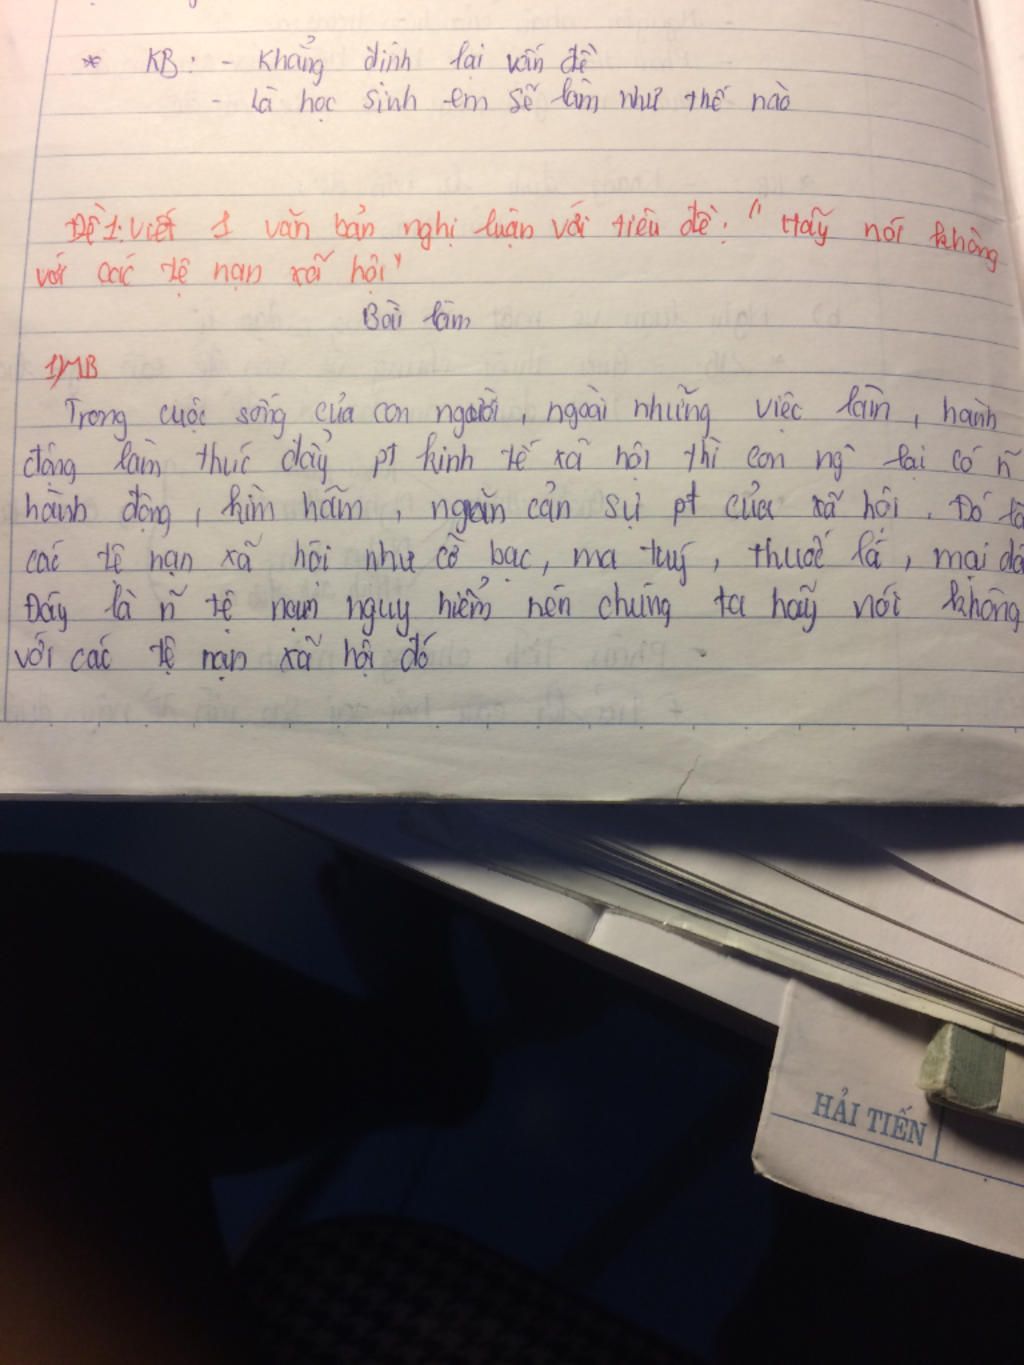 * KB: - Khẳng định lại vấn đề
- Là học sinh em sẽ làm như thế nào
Đề 1: Viết 1 văn bản nghị luận với tiêu đề: "Hãy nói không
với các tệ nạn xã hội"
Bài làm
1) MB
Trong cuộc sống của con người, ngoài những việc làm, hành
động làm thúc đẩy pt kinh tế xã hội thì con ng̀ lại có ñ
hành động, kìm hãm, ngăn cản sự pt của xã hội. Đó là
các tệ nạn xã hội như cờ bạc, ma tuý, thuốc lá, mại dâ
Đây là ñ tệ nạn nguy hiểm nên chúng ta hãy nói không
với các tệ nạn xã hội đó
HẢI TIẾN